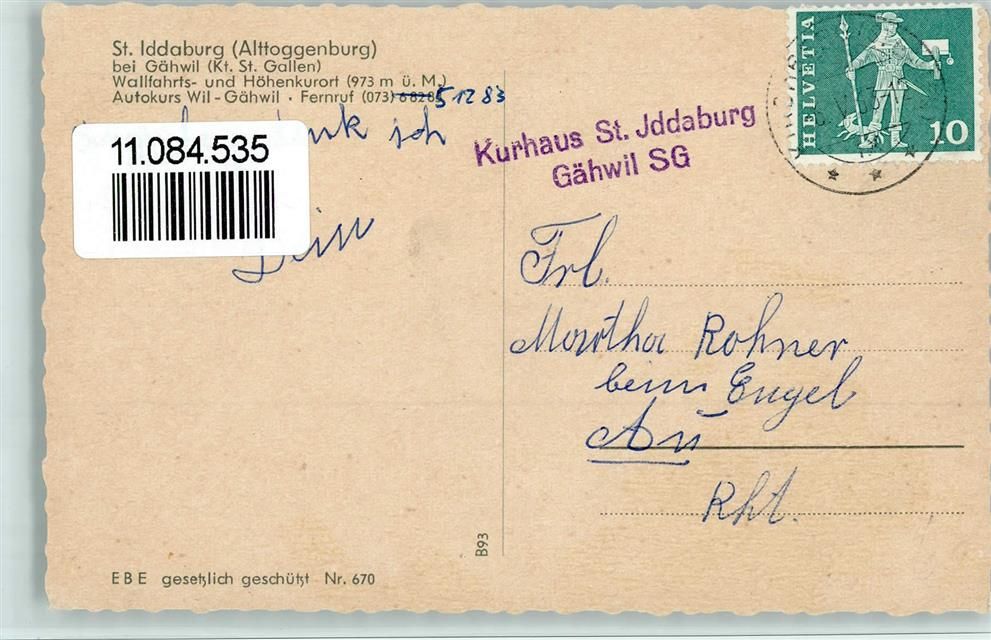 St. Iddaburg (Alttoggenburg)
bei Gähwil (Kt. St. Gallen)
Wallfahrts- und Höhenkurort (973 m ü. M.)
Autokurs Wil-Gähwil · Fernruf (073) 6 82 85 5 12 83
ich
11.084.535
Dein
EBE gesetzlich geschützt Nr. 670
B93
Kurhaus St. Jddaburg
Gähwil SG
HELVETIA
10
Frl.
Martha Rohner
beim Engel
Au
Rht.